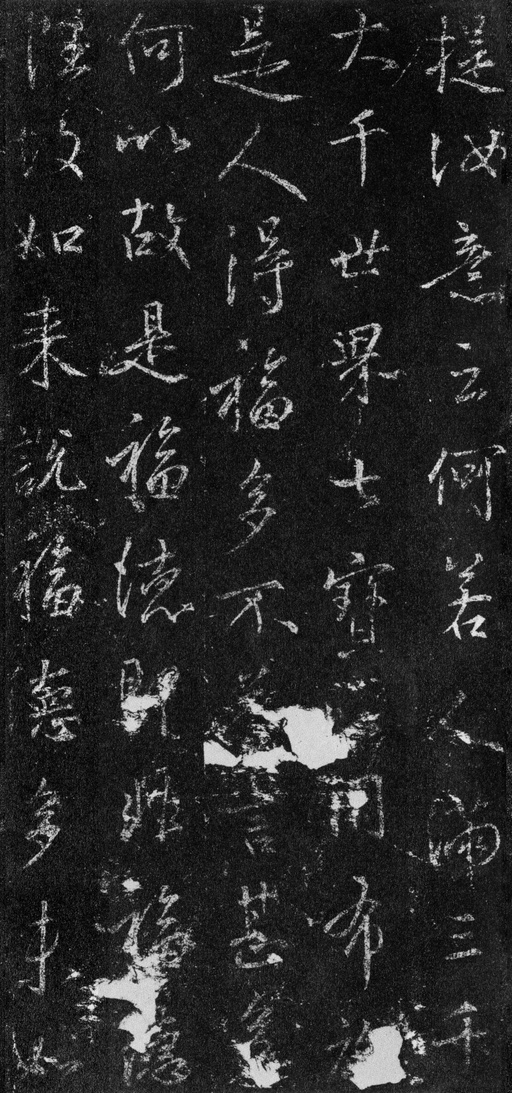 提汝意云何若人滿三千
大千世界七寶用布施
是人得福多不菩言甚多
何以故是福德即非福德
性故如來說福德多如